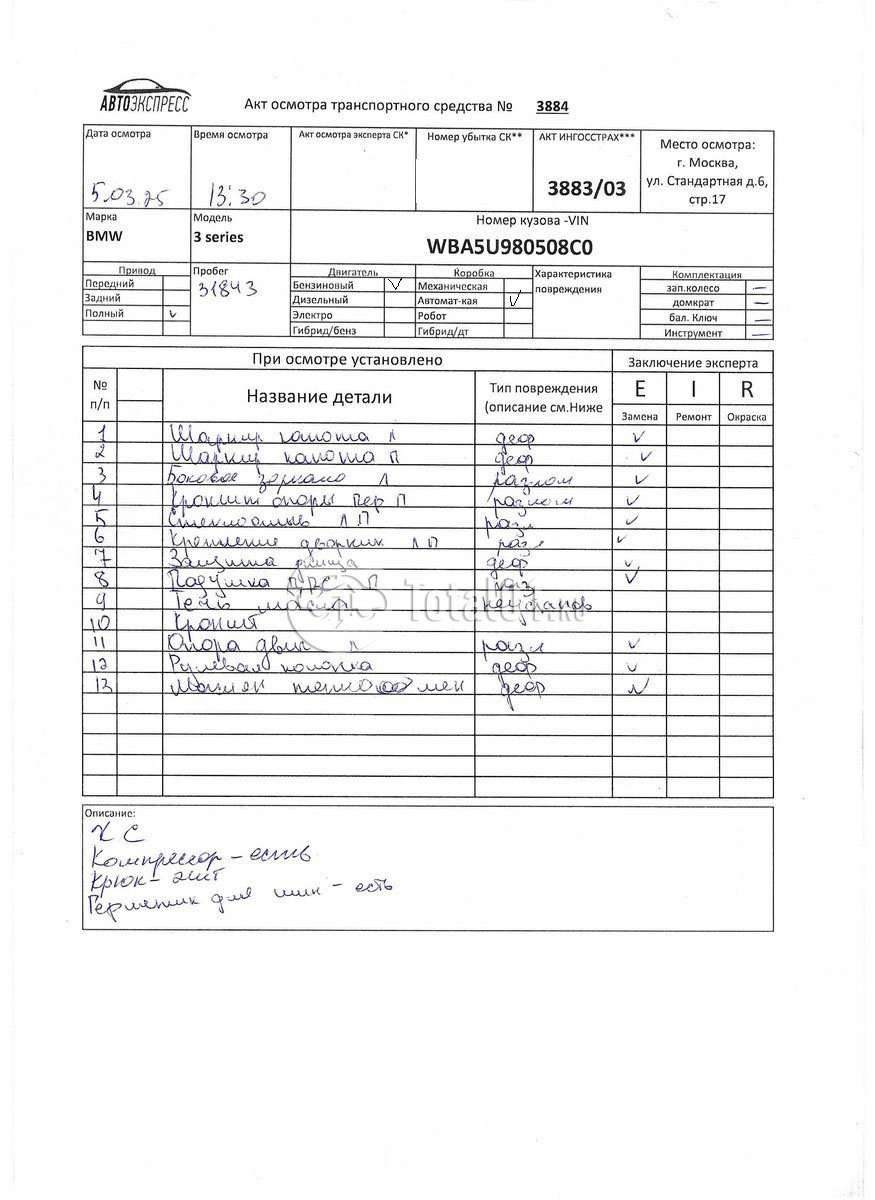 АВТОЭКСПРЕСС
Акт осмотра транспортного средства № 3884
Дата осмотра Время осмотра Акт осмотра эксперта СК* Номер убытка СК** АКТ ИНГОССТРАХ*** Место осмотра:
г. Москва,
ул. Стандартная д.6,
стр.17
5.03.25 13:30 3883/03
Марка Модель Номер кузова -VIN
BMW 3 series WBA5U980508C0
Привод Пробег Двигатель Коробка Характеристика Комплектация
Передний 31843 Бензиновый V Механическая повреждения зап.колесо —
Задний Дизельный Автомат-кая V домкрат —
Полный v Электро Робот бал. Ключ —
Гибрид/бенз Гибрид/дт Инструмент —
При осмотре установлено Заключение эксперта
№ п/п Название детали Тип повреждения (описание см.Ниже E I R
Замена Ремонт Окраска
1 Шарнир капота Л деф v
2 Шарнир капота П деф v
3 Боковое зеркало Л разлом v
4 Кроншт опоры пер П разлом v
5 Л П разл v
6 Крепление дворник Л П разл v
7 Защита днища деф v
8 Подушка ДВС П раз v
9 Течь масла
10 Кроншт
11 Опора двиг Л разл v
12 Рулевая колонка деф v
13 деф v
TotalOut.ru
Описание:
Х С
Компрессор – есть
Крюк –
Герметик для шин – есть